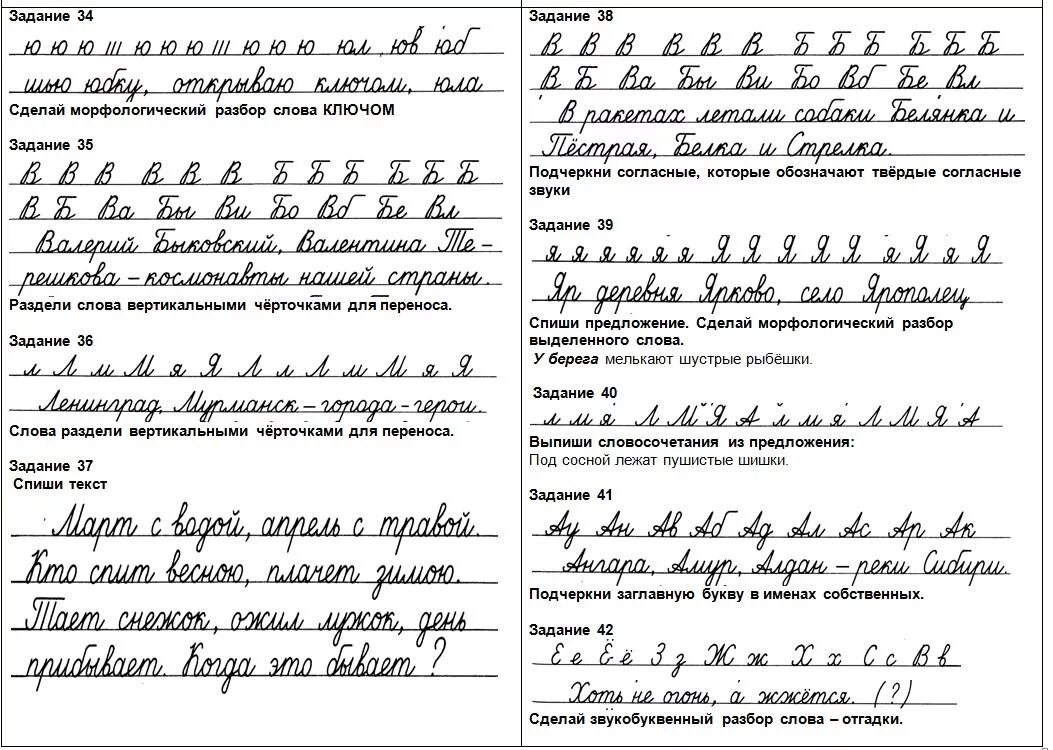 Задание 34
ю ю ю ш ю ю ю ш ю ю ю юл юв юб
шью юбку, открываю ключом, юла
Сделай морфологический разбор слова КЛЮЧОМ
Задание 35
В В В В В В Б Б Б Б Б Б
В Б Ва Бы Ви Бо Вб Бе Вл
Валерий Быковский, Валентина Те-
решкова – космонавты нашей страны.
Раздели слова вертикальными чёрточками для переноса.
Задание 36
л Л м М я Я Л л Л м М я Я
Ленинград, Мурманск – города - герои.
Слова раздели вертикальными чёрточками для переноса.
Задание 37
Спиши текст
Март с водой, апрель с травой.
Кто спит весною, плачет зимою.
Тает снежок, ожил лужок, день
прибывает. Когда это бывает?
Задание 38
В В В В В В Б Б Б Б Б Б
В Б Ва Бы Ви Бо Вб Бе Вл
В ракетах летали собаки Белянка и
Пёстрая, Белка и Стрелка.
Подчеркни согласные, которые обозначают твёрдые согласные
звуки
Задание 39
я я я я я я Я Я Я Я Я я Я я Я
Яр деревня Ярково, село Ярополец
Спиши предложение. Сделай морфологический разбор
выделенного слова.
У берега мелькают шустрые рыбёшки.
Задание 40
л м я Л М Я А л м я Л М Я А
Выпиши словосочетания из предложения:
Под сосной лежат пушистые шишки.
Задание 41
Ау Ан Ав Аб Ад Ал Ас Ар Ак
Ангара, Амур, Алдан – реки Сибири.
Подчеркни заглавную букву в именах собственных.
Задание 42
Е е Ё ё З з Ж ж Х х С с В в
Хоть не огонь, а жжётся. (?)
Сделай звукобуквенный разбор слова – отгадки.